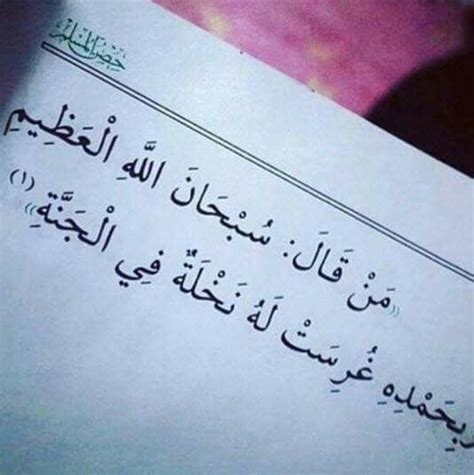 حِصْنُ المُسْلِمِ
((مَنْ قَالَ: سُبْحَانَ اللَّهِ الْعَظِيمِ
وَبِحَمْدِهِ غُرِسَتْ لَهُ نَخْلَةٌ فِي الْجَنَّةِ)) (١)